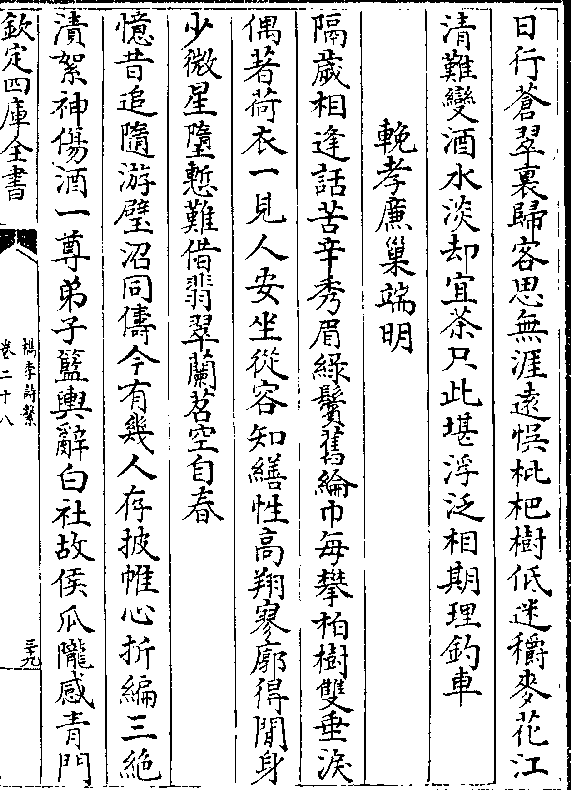 日行蒼翠裏歸客思無涯遠悞枇杷樹低迷穱麥花江
清難變酒水淡却宜茶只此堪浮泛相期理釣車
輓孝廉巢端明
隔歲相逢話苦辛秀眉綠鬢舊綸巾每攀柏樹雙垂淚
偶著荷衣一見人安坐從容知繕性高翔寥廓得閒身
少微星墮慙難借翡翠蘭苕空自春
憶昔追隨游璧沼同儔今有幾人存披帷心折編三絶
漬絮神傷酒一尊弟子籃輿辭白社故侯瓜隴感青門
欽定四庫全書
檇李詩繫
卷二十八
三十九